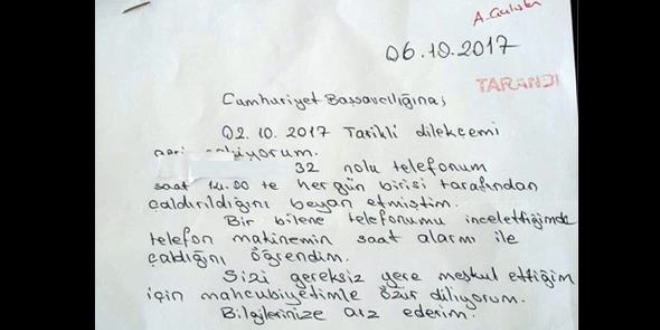 A. Gülsta
06.10.2017
TARANDI
Cumhuriyet Başsavcılığına;
02.10.2017 Tarikli dilekçemi
geri çekiyorum.
32 nolu telefonum
saat 14.00 te her gün birisi tarafından
çaldırıldığını beyan etmiştim.
Bir bilene telefonumu incelettiğimde
telefon makinemin saat alarmı ile
çaldığını öğrendim.
Sizi gereksiz yere meşkul ettiğim
için mahcubiyetimle özür diliyorum.
Bilgilerinize arz ederim.